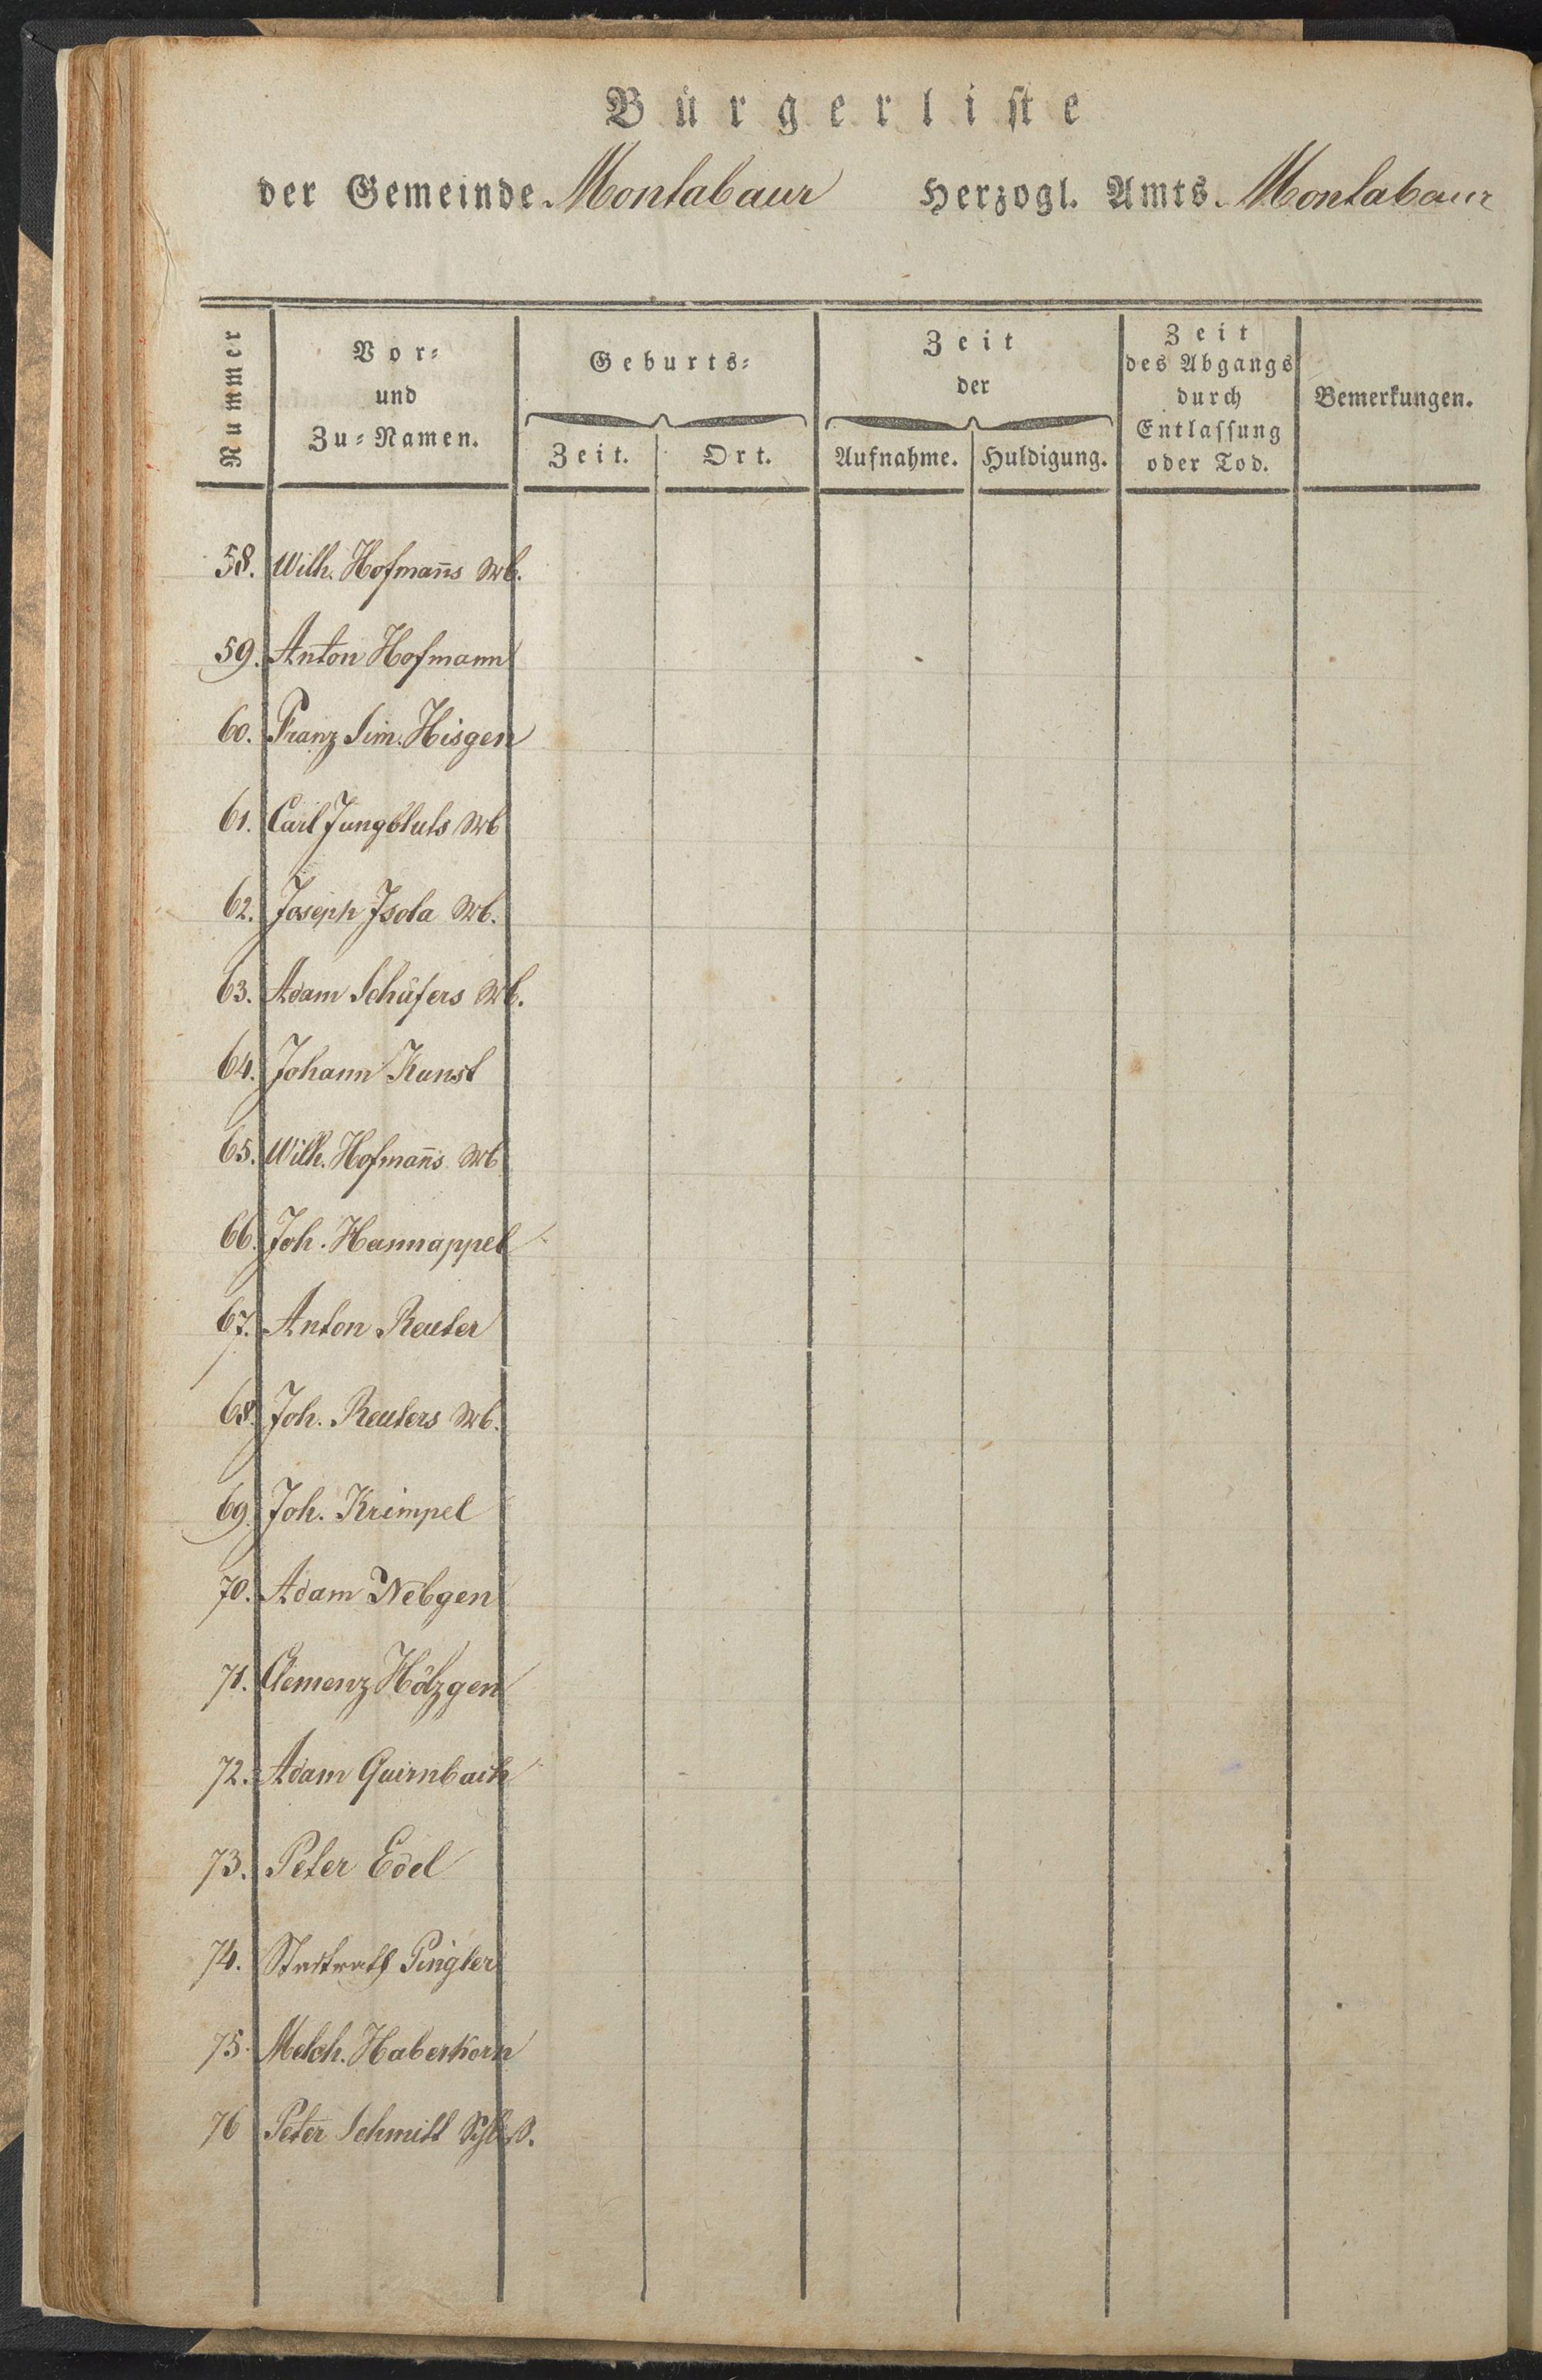 Bürgerliste
der Gemeinde Montabaur Herzogl. Amts Montabaur
Nummer
Vor-
und
Zu-Namen.
Geburts-
Zeit.
Ort.
Zeit
der
Aufnahme.
Huldigung.
Zeit
des Abgangs
durch
Entlassung
oder Tod.
Bemerkungen.
58. Wilh. Hofman̄s Wb.
59. Anton Hofmann
60. Franz Sim. Hisgen
61. Carl Jungbluts Wb
62. Joseph Isola Wb.
63. Adam Schäfers Wb.
64. Johann Kunst
65. Wilh. Hofman̄s Wb
66. Joh. Hannappel
67. Anton Reuter
68. Joh. Reuters Wb.
69. Joh. Krimpel
70. Adam Nebgen
71. Clemenz Hölzgen
72. Adam Quirnbach
73. Peter Edel
74. Stadtrath Pingler
75. Melch. Haberkorn
76 Peter Schmitt